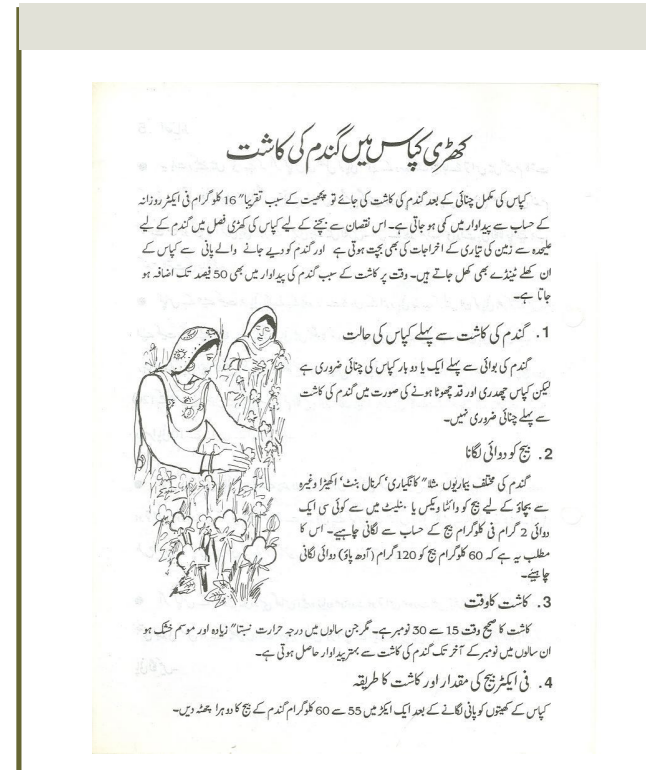 کھڑی کپاس میں گندم کی کاشت
کپاس کی مکمل چنائی کے بعد گندم کی کاشت کی جائے تو پچھیت کے سبب تقریبا" 16 کلوگرام فی ایکڑ روزانہ
کے حساب سے پیداوار میں کمی ہو جاتی ہے۔ اس نقصان سے بچنے کے لیے کپاس کی کھڑی فصل میں گندم کے لیے
علیحدہ سے زمین کی تیاری کے اخراجات کی بھی بچت ہوتی ہے اور گندم کو دیے جانے والے پانی سے کپاس کے
ان کھلے ٹینڈے بھی کھل جاتے ہیں۔ وقت پر کاشت کے سبب گندم کی پیداوار میں بھی 50 فیصد تک اضافہ ہو
جاتا ہے۔
1. گندم کی کاشت سے پہلے کپاس کی حالت
گندم کی بوائی سے پہلے ایک یا دو بار کپاس کی چنائی ضروری ہے
لیکن کپاس چھدری اور قد چھوٹا ہونے کی صورت میں گندم کی کاشت
سے پہلے چنائی ضروری نہیں۔
2. بیج کو دوائی لگانا
گندم کی مختلف بیماریوں مثلا" کانگیاری' کرنال بنٹ' اکھیڑا وغیرہ
سے بچاؤ کے لیے بیج کو وائٹا ویکس یا بنلیٹ میں سے کوئی سی ایک
دوائی 2 گرام فی کلوگرام بیج کے حساب سے لگانی چاہیے۔ اس کا
مطلب یہ ہے کہ 60 کلوگرام بیج کو 120 گرام (آدھ پاؤ) دوائی لگانی
چاہیئے۔
3. کاشت کا وقت
کاشت کا صحیح وقت 15 سے 30 نومبر ہے۔ مگر جن سالوں میں درجہ حرارت نسبتا" زیادہ اور موسم خشک ہو
ان سالوں میں نومبر کے آخر تک گندم کی کاشت سے بہتر پیداوار حاصل ہوتی ہے۔
4. فی ایکڑ بیج کی مقدار اور کاشت کا طریقہ
کپاس کے کھیتوں کو پانی لگانے کے بعد ایک ایکڑ میں 55 سے 60 کلوگرام گندم کے بیج کا دوہرا چھٹہ دیں۔